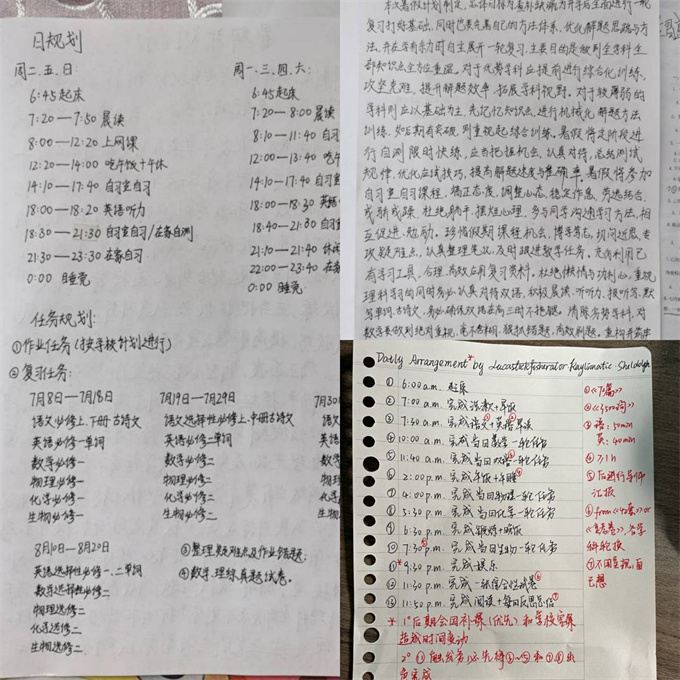 日规划
周二、五、日:
6:45起床
7:20—7:50 晨读
8:00—12:20 上网课
12:20—14:00 吃午饭+午休
14:10—17:40 自习室自习
18:00—18:20 英语听力
18:30—21:30 自习室自习/在家自测
21:30—23:30 在家自习
0:00 睡觉
周一、三、四、六:
6:45起床
7:20—8:00 晨读
8:10—11:40 自习
12:00—13:40 吃午
14:10—17:40 自习室
18:00—18:30 英语
18:40—21:00 自习
21:10—21:40 休闲
22:00—23:40 在家
0:00 睡觉
任务规划:
①作业任务(按学校计划进行)
②复习任务:
7月8日—7月18日
语文必修上、下册古诗文
英语必修一单词
数学必修一
物理必修一
化学必修一
生物必修一
7月19日—7月29日
语文选择性必修上、中册古诗文
英语必修二单词
数学必修二
物理必修二
化学必修二
生物必修二
7月30
语文
英语
数学
物理
化学
生物
8月10日—8月20日
英语选择性必修一、二单词
数学选择性必修二
物理选修二
化学选修二
生物选修二
③整理疑难点及作业错题;
④数学、理综真题试卷。
本次暑假计划制定,总体目标为查补缺漏为开学后全面进行一轮
复习打好基础,同时也要完善自己的方法体系,优化解题思路与方
法,并在学有余力时自主展开一轮复习,主要目的是做到全学科全
部知识点全方位重温。对于优势学科应提前进行综合化训练,
攻坚克难,提升解题效率,拓展学科视野。对于较薄弱的
学科则应以基础为主,先记忆知识点,进行机械化解题方法
训练,如后期有突破,则重视起综合训练。暑假将定阶段进
行自测限时快练,应当把握机会,认真对待,总结测试
规律,优化应试技巧,提高解题速度与准确率。暑假将参加
自习室自习课程,矫正态度,调整心态,稳定作息,劳逸结合,
戒骄戒躁,杜绝躺平、摆烂心理,多与同学沟通学习方法,相
互促进、勉励,珍惜假期课程机会,博学笃志,切问近思,专
攻疑难点,认真整理笔记,及时跟进教学任务。充分利用已
有学习工具,合理、高效应用复习资料,杜绝懒惰与功利心,重视
理科学习的同时务必认真对待双语,积极晨读、听听力、报听写、默
写单词、古诗文,务必确保双语在高三时不拖腿。清除劣势学科,对
数学要做到绝对重视,毫不含糊,狠抓错题,高效刷题。
Daily Arrangement* by
① 6:00 a.m. 起床
② 7:00 a.m. 完成洗漱+早饭
③ 7:30 a.m. 完成语文①+英语②早读③
④ 10:00 a.m. 完成当日数学一轮任务
⑤ 11:40 a.m. 完成当日双语一轮任务
⑥ 2:00 p.m. 完成午饭+午睡④
⑦ 4:00 p.m. 完成当日物理一轮任务
⑧ 5:30 p.m. 完成当日化学一轮任务
⑨ 6:30 p.m. 完成锻炼+晚饭
⑩ 7:30⑤p.m. 完成当日生物一轮任务
⑪*9:30 p.m. 完成娱乐
⑫ 11:30 p.m. 完成一张综合性试卷⑥
⑬ 11:50 p.m. 完成阅读+每日反思总结⑦
* 1°后期会因补课(优先)和学校网课
造成时间变动
2° ⑪ 触发务必先将①~⑤和⑦⑧出
色完成
①《72篇》
②《3500词》
③语:50min
英:40min
④≥1h
⑤后进行导师
汇报
⑥from
科轮换
⑦不因重视,百